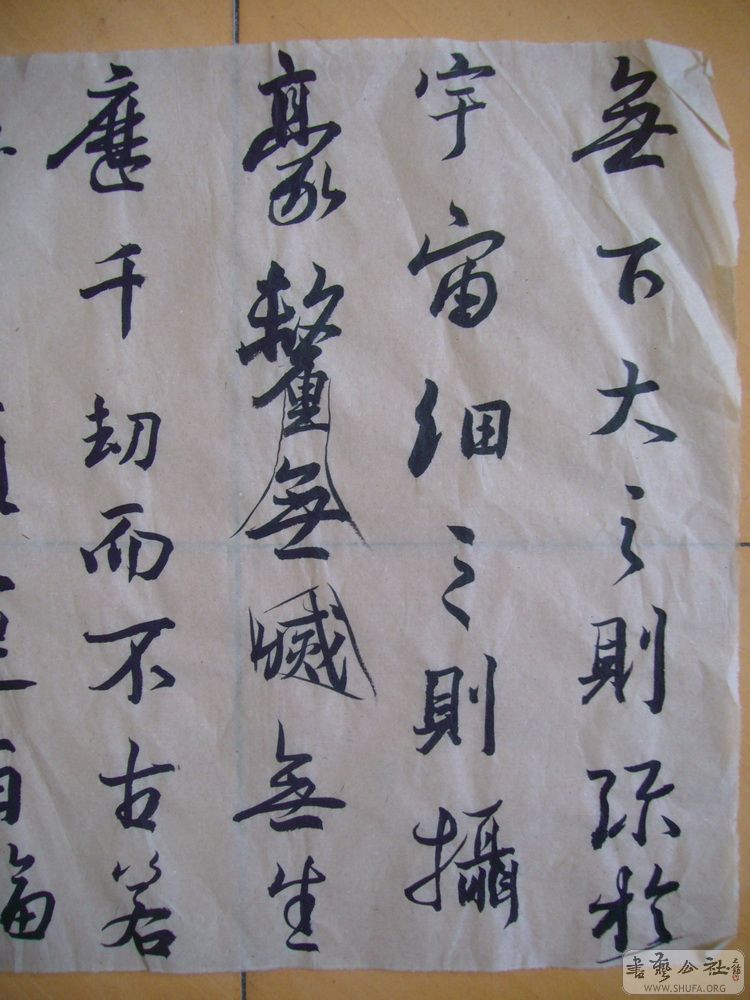 無下大之則弥於
宇宙細之則攝
豪釐無滅無生
歷千劫而不古若
書藝公社
WWW.SHUFA.ORG